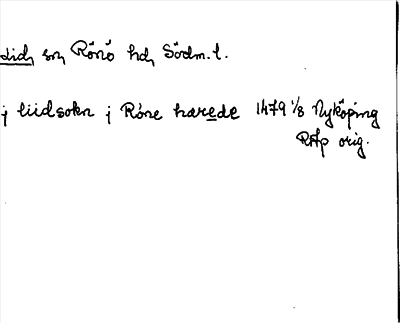 Lid, sn, Rönö hd, Södm.l.
j liidsokn j Röne hærede 1479 1/8 Nyköping
RAp orig.